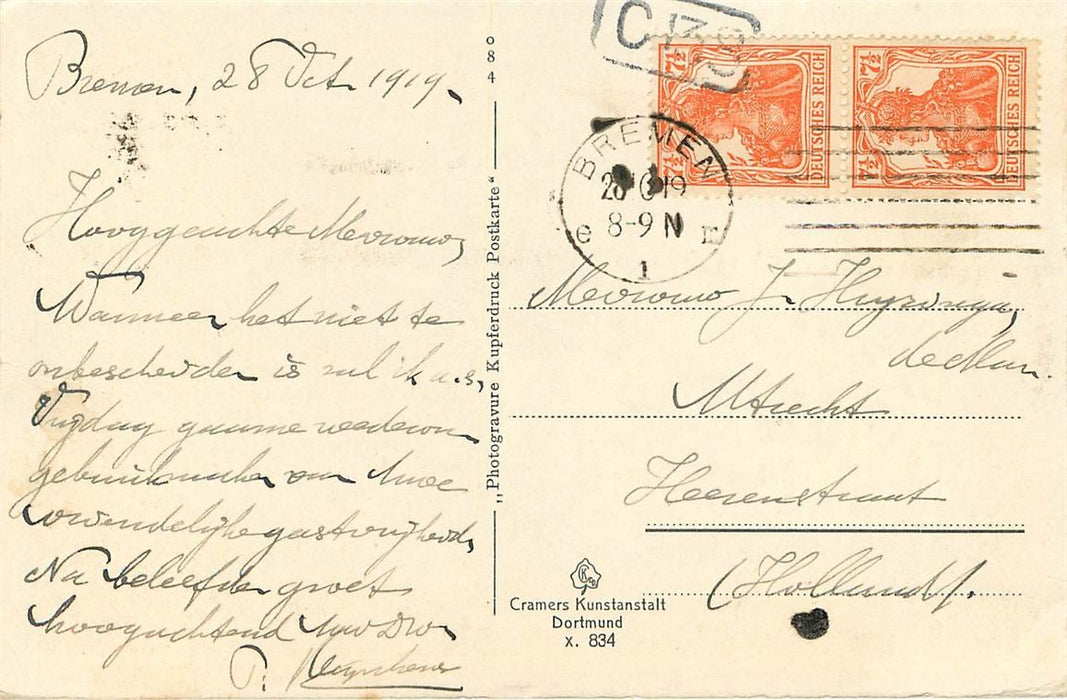 Bremen, 28 Oct. 1919.
Hooggeachte Mevrouw,
Wanneer het niet te
onbescheiden is zal ik a.s.
Vrijdag gaarne wederom
gebruikmaken van Uwe
vriendelijke gastvrijheid.
Na beleefde groet
hoogachtend Uw Dw.
P.
o
8
4
„Photogravure Kupferdruck Postkarte“
C
7½ DEUTSCHES REICH 7½
7½ DEUTSCHES REICH
BREMEN
28 10 19
8-9 N
1
Mevrouw
Utrecht
Heerenstraat
(Holland).
Cramers Kunstanstalt
Dortmund
x. 834